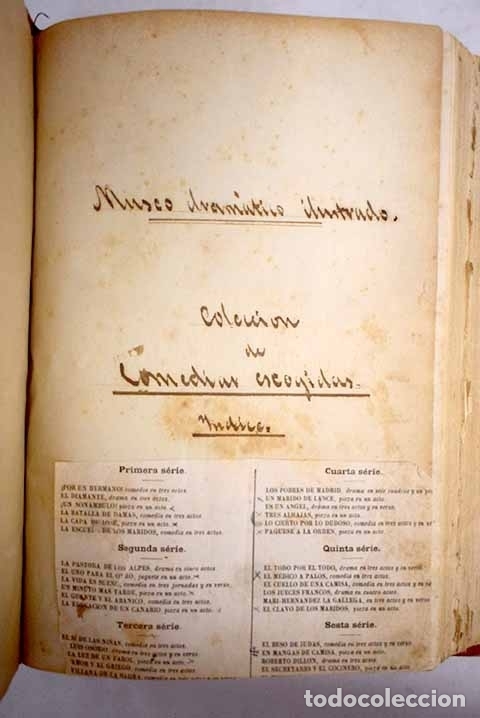 Museo dramático ilustrado.
Coleccion
de
Comedias escogidas.
Indice.
Primera série.
¡POR UN HERMANO! comedia en tres actos.
EL DIAMANTE, drama en tres actos.
¡UN SONÁMBULO! pieza en un acto.
LA BATALLA DE DAMAS, comedia en tres actos.
LA CAPA DE JOSÉ, pieza en un acto.
LA ESCUELA DE LOS MARIDOS, comedia en tres actos.
Segunda série.
LA PASTORA DE LOS ALPES, drama en cinco actos
EL UNO PARA EL OTRO, juguete en un acto.
LA VIDA ES SUEÑO, comedia en tres jornadas y en verso.
UN MINUTO MAS TARDE, pieza en un acto.
EL GUANTE Y EL ABANICO, comedia en tres actos.
LA EVASION DE UN CANARIO, pieza en un acto.
Tercera série.
EL SÍ DE LAS NIÑAS, comedia en tres actos.
LUIS OSORIO, drama en tres actos y en verso.
LA LUZ DE UN FAROL, pieza en un acto.
AMOR Y EL GRIEGO,
VILLANA DE LA SAGRA, comedia en tres actos
Cuarta série.
LOS POBRES DE MADRID, drama en seis cuadros y un
UN MARIDO DE LANCE, pieza en un acto.
ES UN ANGEL, drama en tres actos y en verso.
TRES ALHAJAS, pieza en un acto.
LO CIERTO POR LO DUDOSO, comedia en tres actos
PAGUESE A LA ORDEN, pieza en un acto.
Quinta série.
EL TODO POR EL TODO, drama en tres actos y en verso
EL MÉDICO A PALOS, comedia en tres actos.
EL CUELLO DE UNA CAMISA, comedia en tres actos y en verso.
LOS JUECES FRANCOS, drama en cuatro actos
MARI-HERNANDEZ LA GALLEGA, en tres actos y en verso.
EL CLAVO DE LOS MARIDOS, pieza en un acto.
Sesta série.
EL BESO DE JUDAS, comedia en tres actos y en verso.
EN MANGAS DE CAMISA, comedia en tres actos y en verso.
ROBERTO DILLON, drama en tres actos.
EL SECRETARIO Y EL COCINERO, pieza en un acto.
todocoleccion